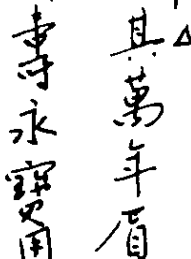 其萬年眉
壽永寶用